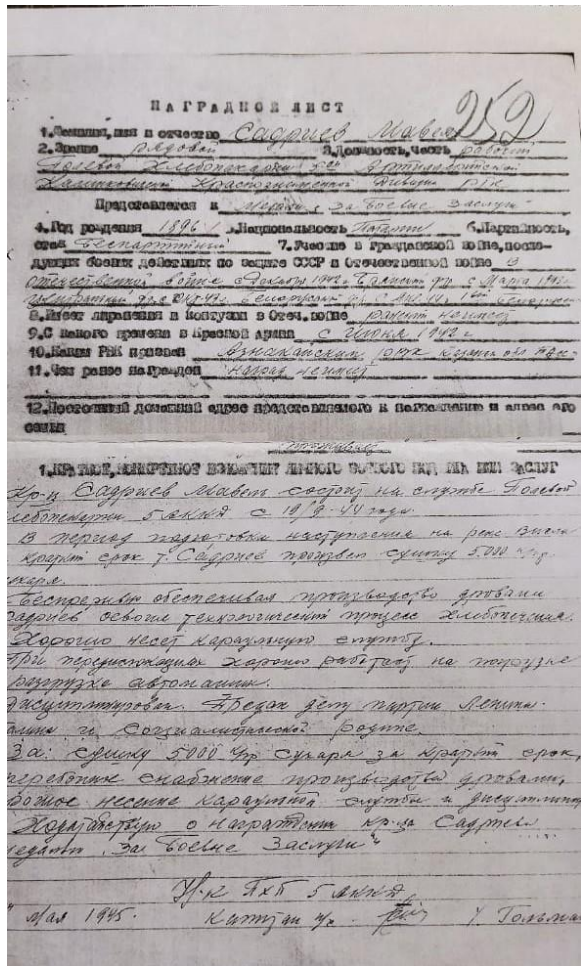 252
НАГРАДНОЙ ЛИСТ
1.Фамилия,имя и отчество Садриев Мавея
2.Звание рядовой 3.Должность,часть рабочий
Полевой Хлебопекарни 5ой Артиллерийской
Калинковичской Краснознаменной Дивизии РГК
Представляется к Медали "За Боевые Заслуги"
4.Год рождения 1896 г. 5.Национальность Татарин 6.Партийность,
стаж Беспартийный 7.Участие в гражданской войне,после-
дующих боевых действиях по защите СССР и Отечественной войне В
Отечественной войне с 1942г. фр. с Марта
Белорусский фр.
8.Имеет ли ранения и контузии в Отеч.войне ранений не имеет
9.С какого времени в Красной Армии с Июня 1942 г
10.Каким РВК призван Азнакаевским
11.Чем ранее награжден Наград не имеет
12.Постоянный домашний адрес представляемого к награждению и адрес его
семьи
1.КРАТКОЕ,КОНКРЕТНОЕ ИЗЛОЖЕНИЕ ЛИЧНОГО БОЕВОГО ПОДВИГА ИЛИ ЗАСЛУГ
Кр-ц Садриев Мавей состоит на службе Полевой
хлебопекарни 5 АККД с 19/9-44 года.
В период подготовки наступления на реке Висла
краткий срок т. Садриев произвел сушку 5.000
сухаря.
Беспрерывно обеспечивая производство дровами
Садриев освоил технологический процесс Хлебопечения.
Хорошо несет караульную службу.
При передислокациях хорошо работает на погрузке
разгрузке автомашин.
Дисциплинирован. Предан делу партии Ленина-
Сталина и Социалистической родине.
За: сушку 5.000 сухаря за краткий срок,
бесперебойное снабжение производства дровами,
хорошее несение караульной службы и дисциплину
Ходатайствую о награждении кр-ца Садриев
медалью "За Боевые Заслуги"
Н-к ПХП 5 АККД
" Мая 1945. Капитан и/с Гольман